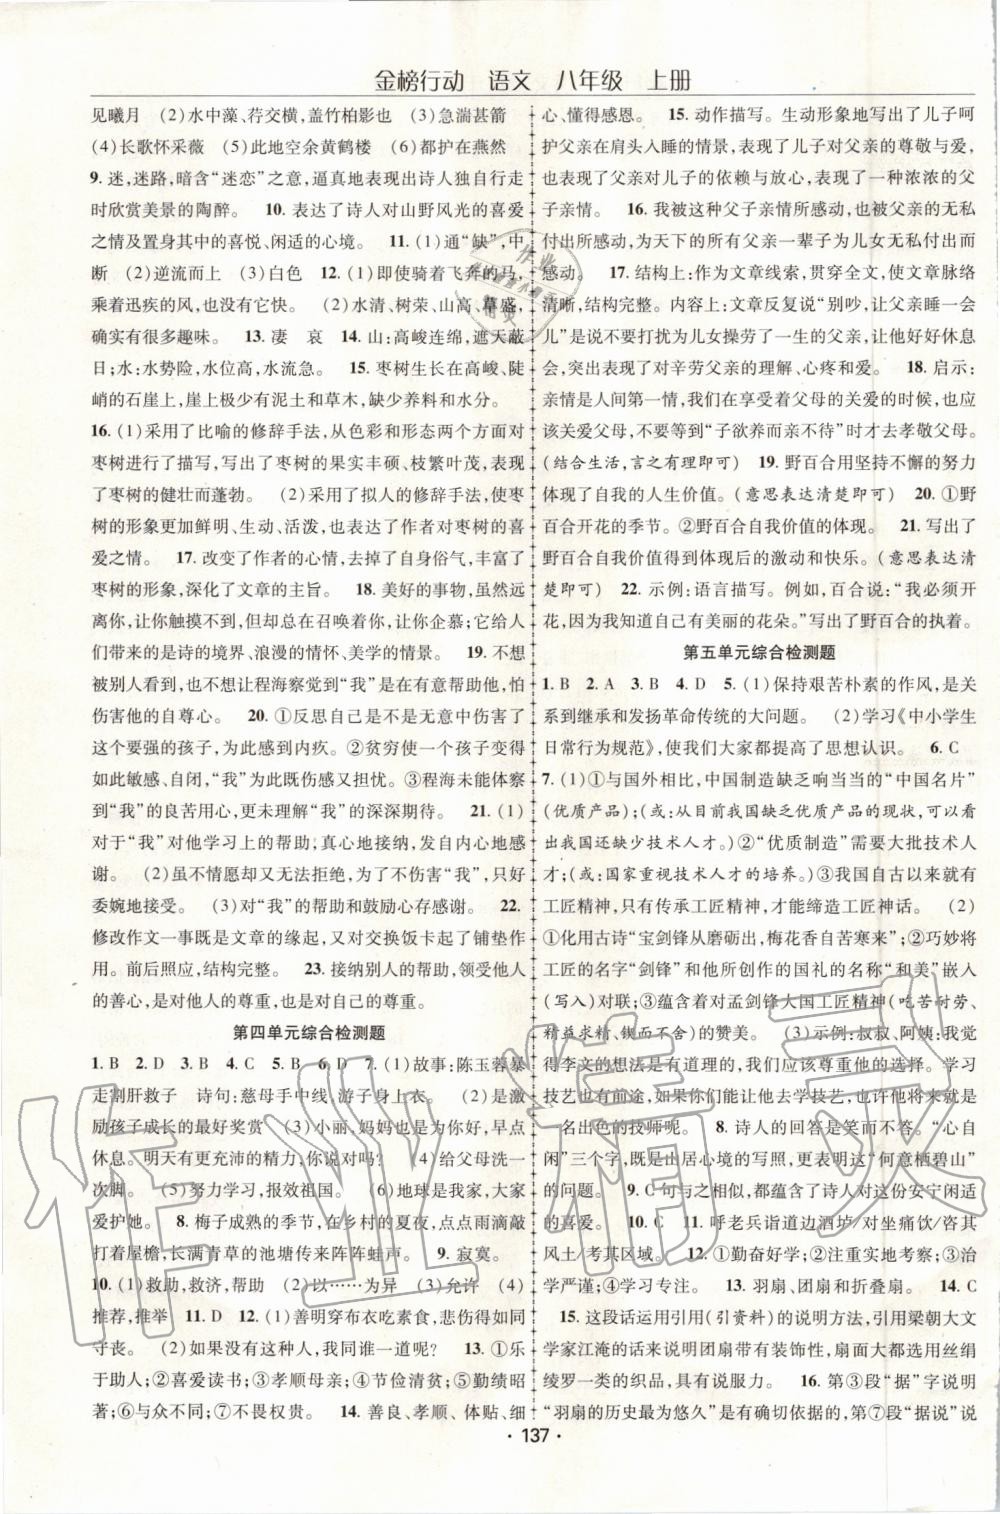 金榜行动　语文　八年级　上册
见曦月　(2)水中藻、荇交横,盖竹柏影也　(3)急湍甚箭
(4)长歌怀采薇　(5)此地空余黄鹤楼　(6)都护在燕然
9. 迷,迷路,暗含“迷恋”之意,逼真地表现出诗人独自行走
时欣赏美景的陶醉。　10. 表达了诗人对山野风光的喜爱
之情及置身其中的喜悦、闲适的心境。　11. (1)通“缺”,中
断　(2)逆流而上　(3)白色　12. (1)即使骑着飞奔的马,
乘着迅疾的风,也没有这么快。　(2)水清、树荣、山高、草盛,
确实有很多趣味。　13. 凄　哀　14. 山:高峻连绵,遮天蔽
日;水:水势险,水位高,水流急。　15. 枣树生长在高峻、陡
峭的石崖上,崖上极少有泥土和草木,缺少养料和水分。
16. (1)采用了比喻的修辞手法,从色彩和形态两个方面对
枣树进行了描写,写出了枣树的果实丰硕、枝繁叶茂,表现
了枣树的健壮而蓬勃。　(2)采用了拟人的修辞手法,使枣
树的形象更加鲜明、生动、活泼,也表达了作者对枣树的喜
爱之情。　17. 改变了作者的心情,去掉了自身俗气,丰富了
枣树的形象,深化了文章的主旨。　18. 美好的事物,虽然遥
不可及,让你触摸不到,但却存在着,让你企慕;它给
人们带来的是诗的境界、浪漫的情怀、美学的情愫。　19. 不想
被别人看到,也不想让程海察觉到“我”是在有意帮助他,怕
伤害他的自尊心。　20. ①反思自己是不是无意中伤害了
这个要强的孩子,为此感到内疚。②贫穷使一个孩子变得
如此敏感、自闭,“我”为此担忧。③程海未能体察
到“我”的良苦用心,更未理解“我”的深深期待。　21. (1)
对于“我”对他学习上的帮助,真心地接纳,发自内心地感
谢。　(2)虽不情愿却又无法拒绝,为了不伤害“我”,只好
委婉地接受。　(3)对“我”的帮助和鼓励心存感谢。　22.
修改作文一事既是文章的缘起,又对交换饭卡起了铺垫作
用。前后照应,结构完整。　23. 接纳别人的帮助,领受他人
的善心,是对他人的尊重,也是对自己的尊重。
第四单元综合检测题
1. B　2. D　3. B　4. C　5. B　6. D　7. (1)故事:陈玉蓉暴
走割肝救子　诗句:慈母手中线,游子身上衣。　(2)是激
励孩子成长的最好奖赏　(3)小丽,妈妈也是为你好,早点
休息。明天有更充沛的精力,你说对吗?　(4)给父母洗一
次脚。　(5)努力学习,报效祖国。　(6)地球是我家,大家
爱护她。　8. 梅子成熟的季节,在乡村的夏夜,点点雨滴敲
打着屋檐,长满青草的池塘传来阵阵蛙声。　9. 寂寞。
10. (1)救助,救济,帮助　(2)以……为异　(3)允许　(4)
推荐,推举　11. D　12. (1)善明穿布衣吃素食,悲伤得如同
守丧。　(2)如果没有这种人,我同谁一道呢?　13. ①乐
于助人;②正直磊落;③孝顺母亲;④节俭清贫;⑤政绩昭
著;⑥与众不同;⑦不畏权贵。　14. 善良、孝顺、体贴、细
心、懂得感恩。　15. 动作描写。生动形象地写出了儿子呵
护父亲在肩头入睡的情景,表现了儿子对父亲的尊敬与爱,
也表现了父亲对儿子的依赖与放心,表现了一种浓浓的父
子亲情。　16. 我被这种父子亲情所感动,也被父亲的无私
付出所感动,为天下的所有父亲一辈子为儿女无私付出而
感动。　17. 结构上:作为文章线索,贯穿全文,使文章脉络
清晰,结构完整。内容上:文章反复说“别吵,让父亲睡一会
儿”是说不要打扰为儿女操劳了一生的父亲,让他好好休息
会,突出表现了对辛劳父亲的理解、心疼和爱。　18. 启示:
亲情是人间第一情,我们在享受着父母的关爱的时候,也应
该关爱父母,不要等到“子欲养而亲不待”时才去孝敬父母。
(结合生活,言之有理即可)　19. 野百合用坚持不懈的努力
体现了自我的人生价值。(意思表达清楚即可)　20. ①野
百合开花的季节。②野百合自我价值的体现。　21. 写出了
野百合自我价值得到体现后的激动和快乐。(意思表达清
楚即可)　22. 示例:语言描写。例如,百合说:“我必须开
花,因为我知道自己有美丽的花朵。”写出了野百合的执着。
第五单元综合检测题
1. B　2. A　3. B　4. D　5. (1)保持艰苦朴素的作风,是关
系到继承和发扬革命传统的大问题。　(2)学习《中小学生
日常行为规范》,使我们大家都提高了思想认识。　6. C
7. (1)①与国外相比,中国制造缺乏响当当的“中国名片”
(优质产品);(或:从目前我国缺乏优质产品的现状,可以看
出我国还缺少技术人才。)②“优质制造”需要大批技术人
才;(或:国家重视技术人才的培养。)③我国自古以来就有
工匠精神,只有传承工匠精神,才能活学活用。　(2)
①化用古诗“宝剑锋从磨砺出,梅花香自苦寒来”;②巧妙将
工匠的名字“剑锋”和他所创作的国礼的名称“和美”嵌入
(写入)对联;③蕴含着对孟剑锋大国工匠精神(吃苦耐劳、
精益求精、锲而不舍)的赞美。　(3)示例:叔叔、阿姨:我觉
得李文的想法是有道理的,我们应该尊重他的选择。学习
技艺也有前途,如果你们能让他去学技艺,也许他会成为
一名出色的技师呢。　8. 诗人的回答是笑而不答。“心自
闲”三个字,既是山居心境的写照,更表明这“何意栖碧山”
的问题。　9. C句与之相似,都蕴含了诗人对这份安宁闲适
的喜爱。　10. C　11. 呼老兵诣道边酒垆/对坐痛饮/咨其
风土/考其区域。　12. ①勤奋好学;②注重实地考察;③治
学严谨;④学习专注。　13. 羽扇、团扇和折叠扇。　14. C
15. 这段话运用引用(引资料)的说明方法,引用梁朝大文
学家江淹的话来说明团扇带有装饰性,扇面大都采用丝绢
绫罗一类的织品,具有说服力。　16. 第③段“据”字说明
“羽扇的历史最为悠久”是有确切依据的,第⑦段“据说”说
·137·